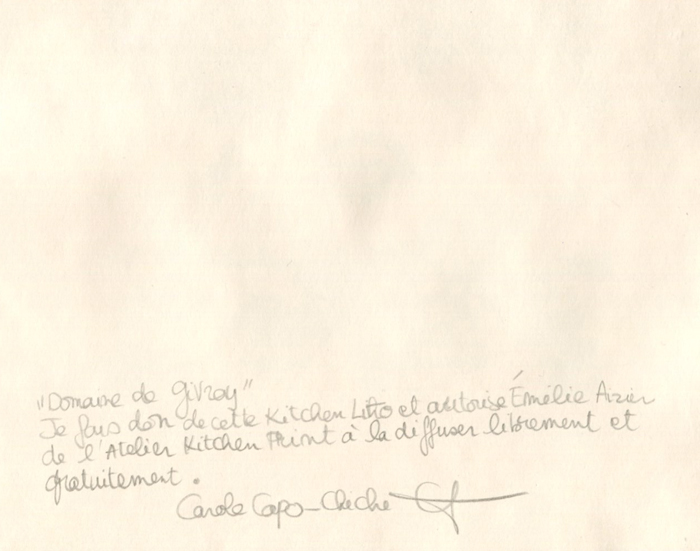 "Domaine de Givray"
Je fais don de cette Kitchen Litho et autorise Émilie Aizier
de l'Atelier Kitchen Print à la diffuser librement et
gratuitement.
Carole Capo-Chichi